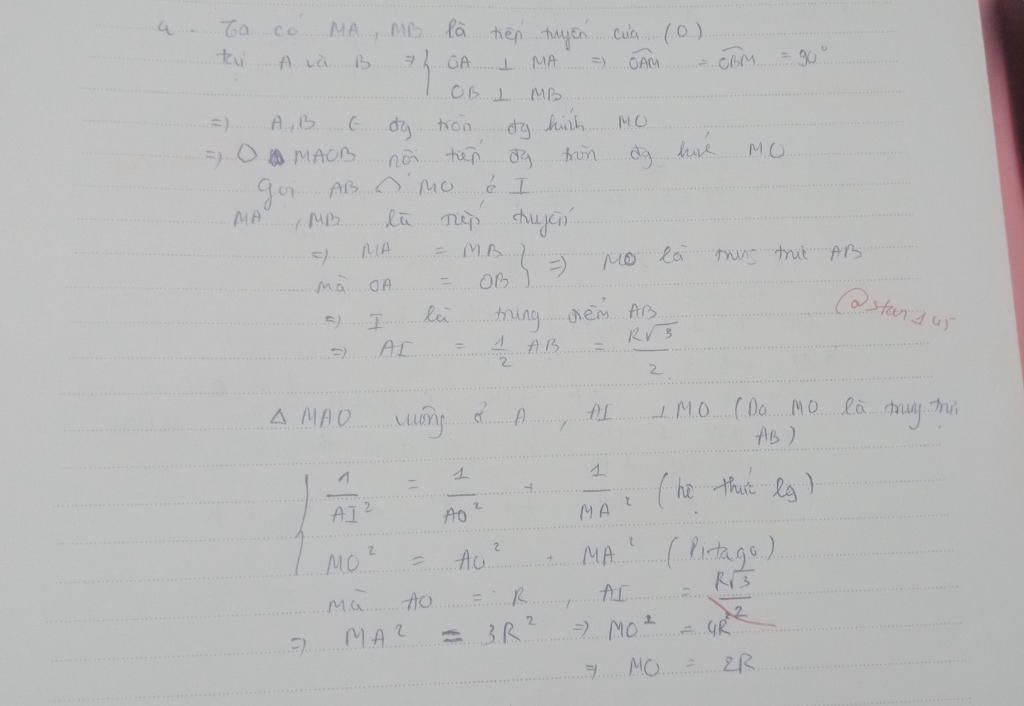 a. Ta có MA, MB là tiếp tuyến của (O)
tại A và B => { OA ⊥ MA => OAM = OBM = 90°
OB ⊥ MB
=> A, B ∈ đg tròn đg kính MO
=> MAOB nội tiếp đg tròn đg kính MO
Gọi AB ∩ MO ở I
MA, MB là tiếp tuyến
=> MA = MB
mà OA = OB } => MO là trung trực AB
=> I là trung điểm AB
@star145
=> AI = 1/2 AB = R√3/2
Δ MAO vuông ở A, AI ⊥ MO (Do MO là trung trực
AB)
1/AI² = 1/AO² + 1/MA² (hệ thức lg)
MO² = AO² + MA² (Pitago)
mà AO = R, AI = R√3/2
=> MA² = 3R² => MO² = 4R²
=> MO = 2R